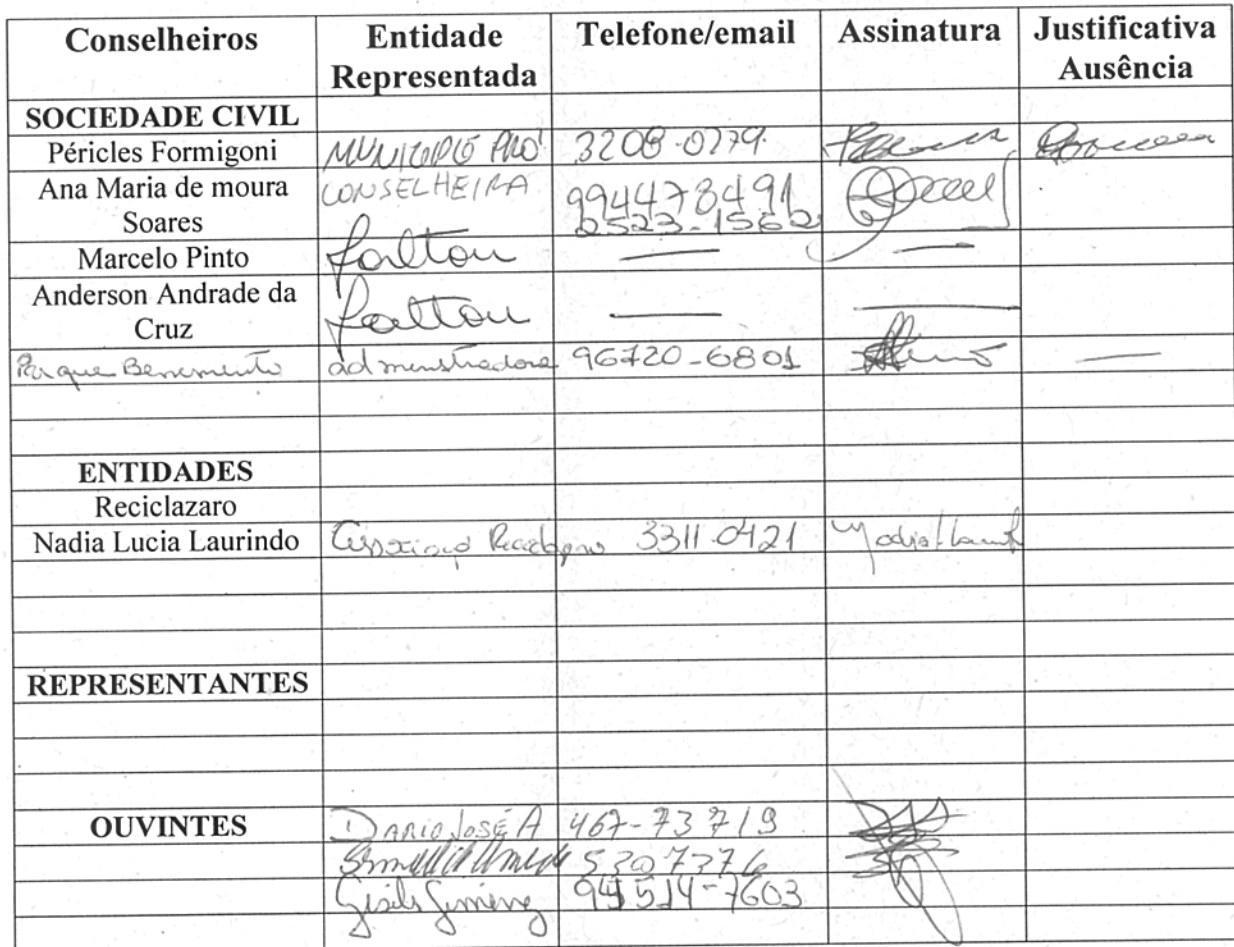 Conselheiros Entidade Representada Telefone/email Assinatura Justificativa Ausência
SOCIEDADE CIVIL
Péricles Formigoni MUNICIPIO PRO 3208-0279
Ana Maria de moura Soares CONSELHEIRA 994478491
2523-1562
Marcelo Pinto faltou —
Anderson Andrade da Cruz faltou —
Parque Benemento administradora 96720-6801 —
ENTIDADES
Reciclazaro
Nadia Lucia Laurindo 3311-0421 Nadia
REPRESENTANTES
OUVINTES DARIO JOSÉ A 467-73719
5307376
Gisele 94514-7603